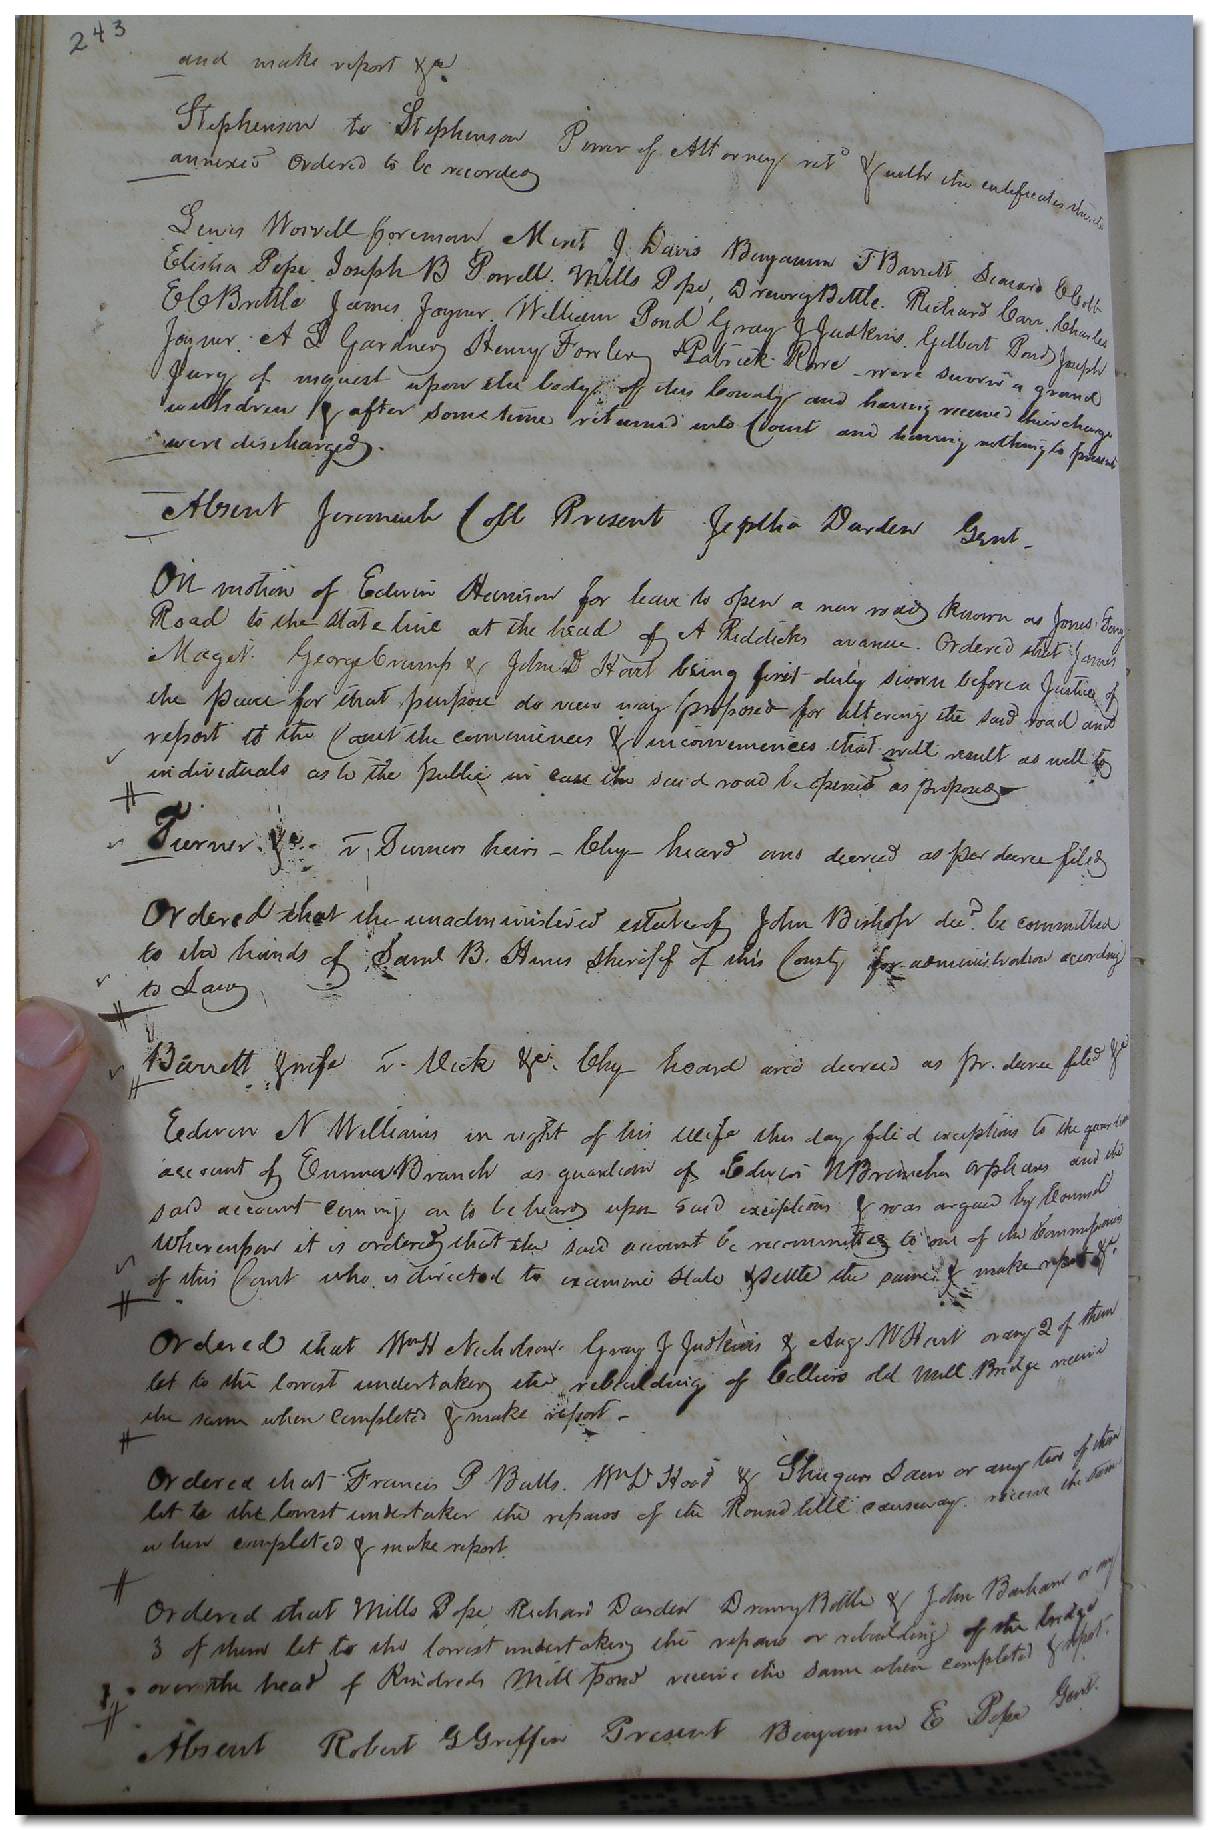 243
and make report &c
Stephenson to Stephenson Power of Attorney retd & with the certificates thereto
annexed ordered to be recorded
Lewis Worrell foreman, Merit J. Davis Benjamin F Barrett. E Cobb
Elisha Pope. Joseph B Powell. Mills Pope, Drewry Bittle. Richard Carr. Charles
E C Brittle James Joyner. William Pond Gray J Judkins. Gilbert Pond Joseph
Joyner. A L Gardner Henry Fowler & Patrick Rove were sworn a grand
Jury of inquest upon the body of this County and having received their charge
withdrew & after sometime returned into Court and having nothing to present
were discharged.
Absent Jeremiah Cobb Present Jeptha Darden Gent.
On motion of Edwin Harrison for leave to open a new road known as Jones' Ferry
Road to the state line at the head of A Riddicks avanue. Ordered that James
Maget. George Crump & John D Hart being first duly sworn before a Justice of
the peace for that purpose do view way proposed for altering the said road and
report to the Court the conveniences & inconveniences that will result as well to
individuals as to the public in case the said road be opened as proposed
Turner &c. v Turners heirs - Chy heard and decreed as per decree filed
Ordered that the unadministered estate of John Bishop decd. be committed
to the hands of Saml B. Hines Sheriff of this County for administration according
to Law
Barrett & wife v. Vick &c. Chy heard and decreed as pr. decree filed &c
Edwin N Williams in right of his wife this day filed exceptions to the guardian
account of Emma Branch as guardian of Edwin Branchs orphans and the
said account coming on to be heard upon said exceptions & was argued by Counsel
Whereupon it is ordered that the said account be recommitted to one of the Commissioners
of this Court who is directed to examine state & settle the same & make report &c.
Ordered that Wm H Nicholson. Gray J Judkins & Aug. W Hart or any 2 of them
let to the lowest undertaker the rebuilding of Colliers old Mill Bridge receive
the same when completed & make report.
Ordered that Francis P Butts. Wm D Hood & or any two of them
let to the lowest undertaker the repairs of the Round hill causeway. receive the same
when completed & make report.
Ordered that Mills Pope, Richard Darden Drewry Bittle & John Barham or any
3 of them let to the lowest undertaker the repairs or rebuilding of the bridge
over the head of Kindreds Mill pond receive the same when completed & report.
Absent Robert G Griffin Present Benjamin E Pope Gent.